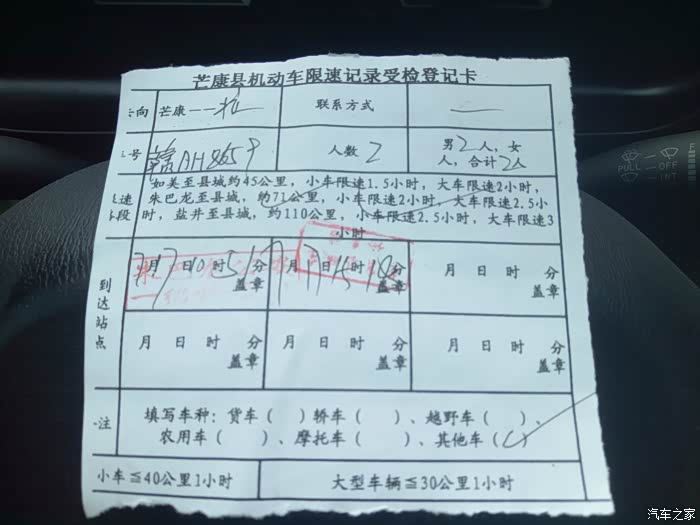 芒康县机动车限速记录受检登记卡
向 芒康——拉 联系方式 —
号 AH8659 人数 2 男2人，女
人，合计2人
如美至县城约45公里，小车限速1.5小时，大车限速2小时，
速 朱巴龙至县城，约71公里，小车限速2小时，大车限速2.5小
段 时，盐井至县城，约110公里，小车限速2.5小时，大车限速3
小时
到达站点
7月17日10时51分 7月17日15时18分 月 日 时 分
盖章 盖章 盖章
月 日 时 分 月 日 时 分 月 日 时 分
盖章 盖章 盖章
注 填写车种：货车（ ）轿车（ ）、越野车（ ）、
农用车（ ）、摩托车（ ）、其他车（✓）
小车≦40公里1小时 大型车辆≦30公里1小时
PULL OFF
汽车之家